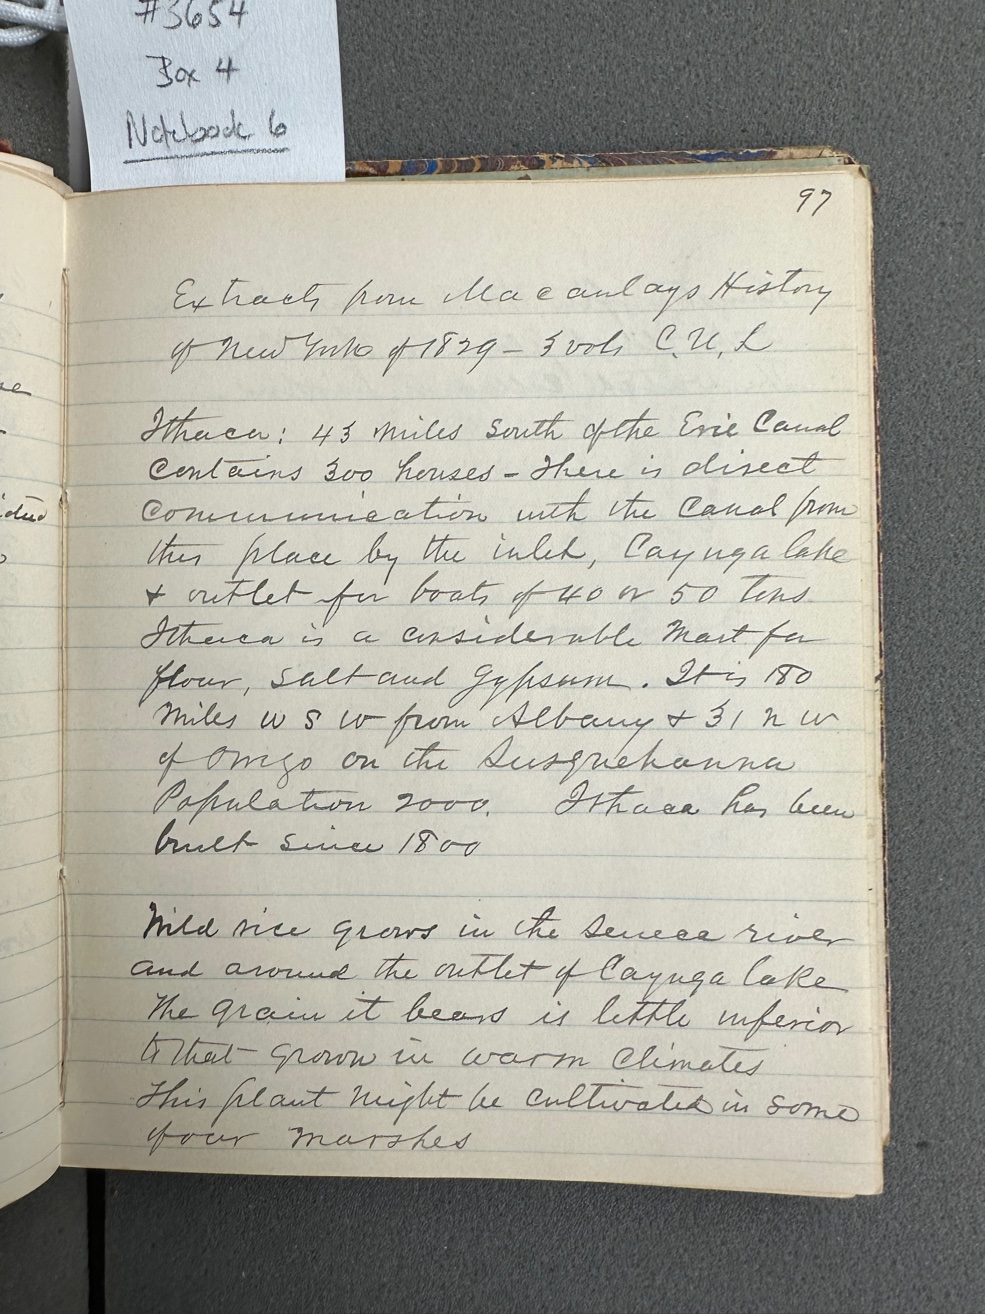 #3654
Box 4
Notebook 6
97
Extracts from Macaulays History
of New York of 1829 - 3 vols C. U. L
Ithaca: 43 miles South of the Erie Canal
Contains 300 houses - There is direct
Communication with the Canal from
this place by the inlet, Cayuga lake
& outlet for boats of 40 or 50 tons
Ithaca is a considerable Mart for
flour, salt and Gypsum. It is 180
miles W S W from Albany & 31 N W
of Owego on the Susquehanna
Population 2000. Ithaca has been
built since 1800
Wild rice grows in the Seneca river
and around the outlet of Cayuga lake
The grain it bears is little inferior
to that grown in warm Climates
This plant might be cultivated in some
of our marshes